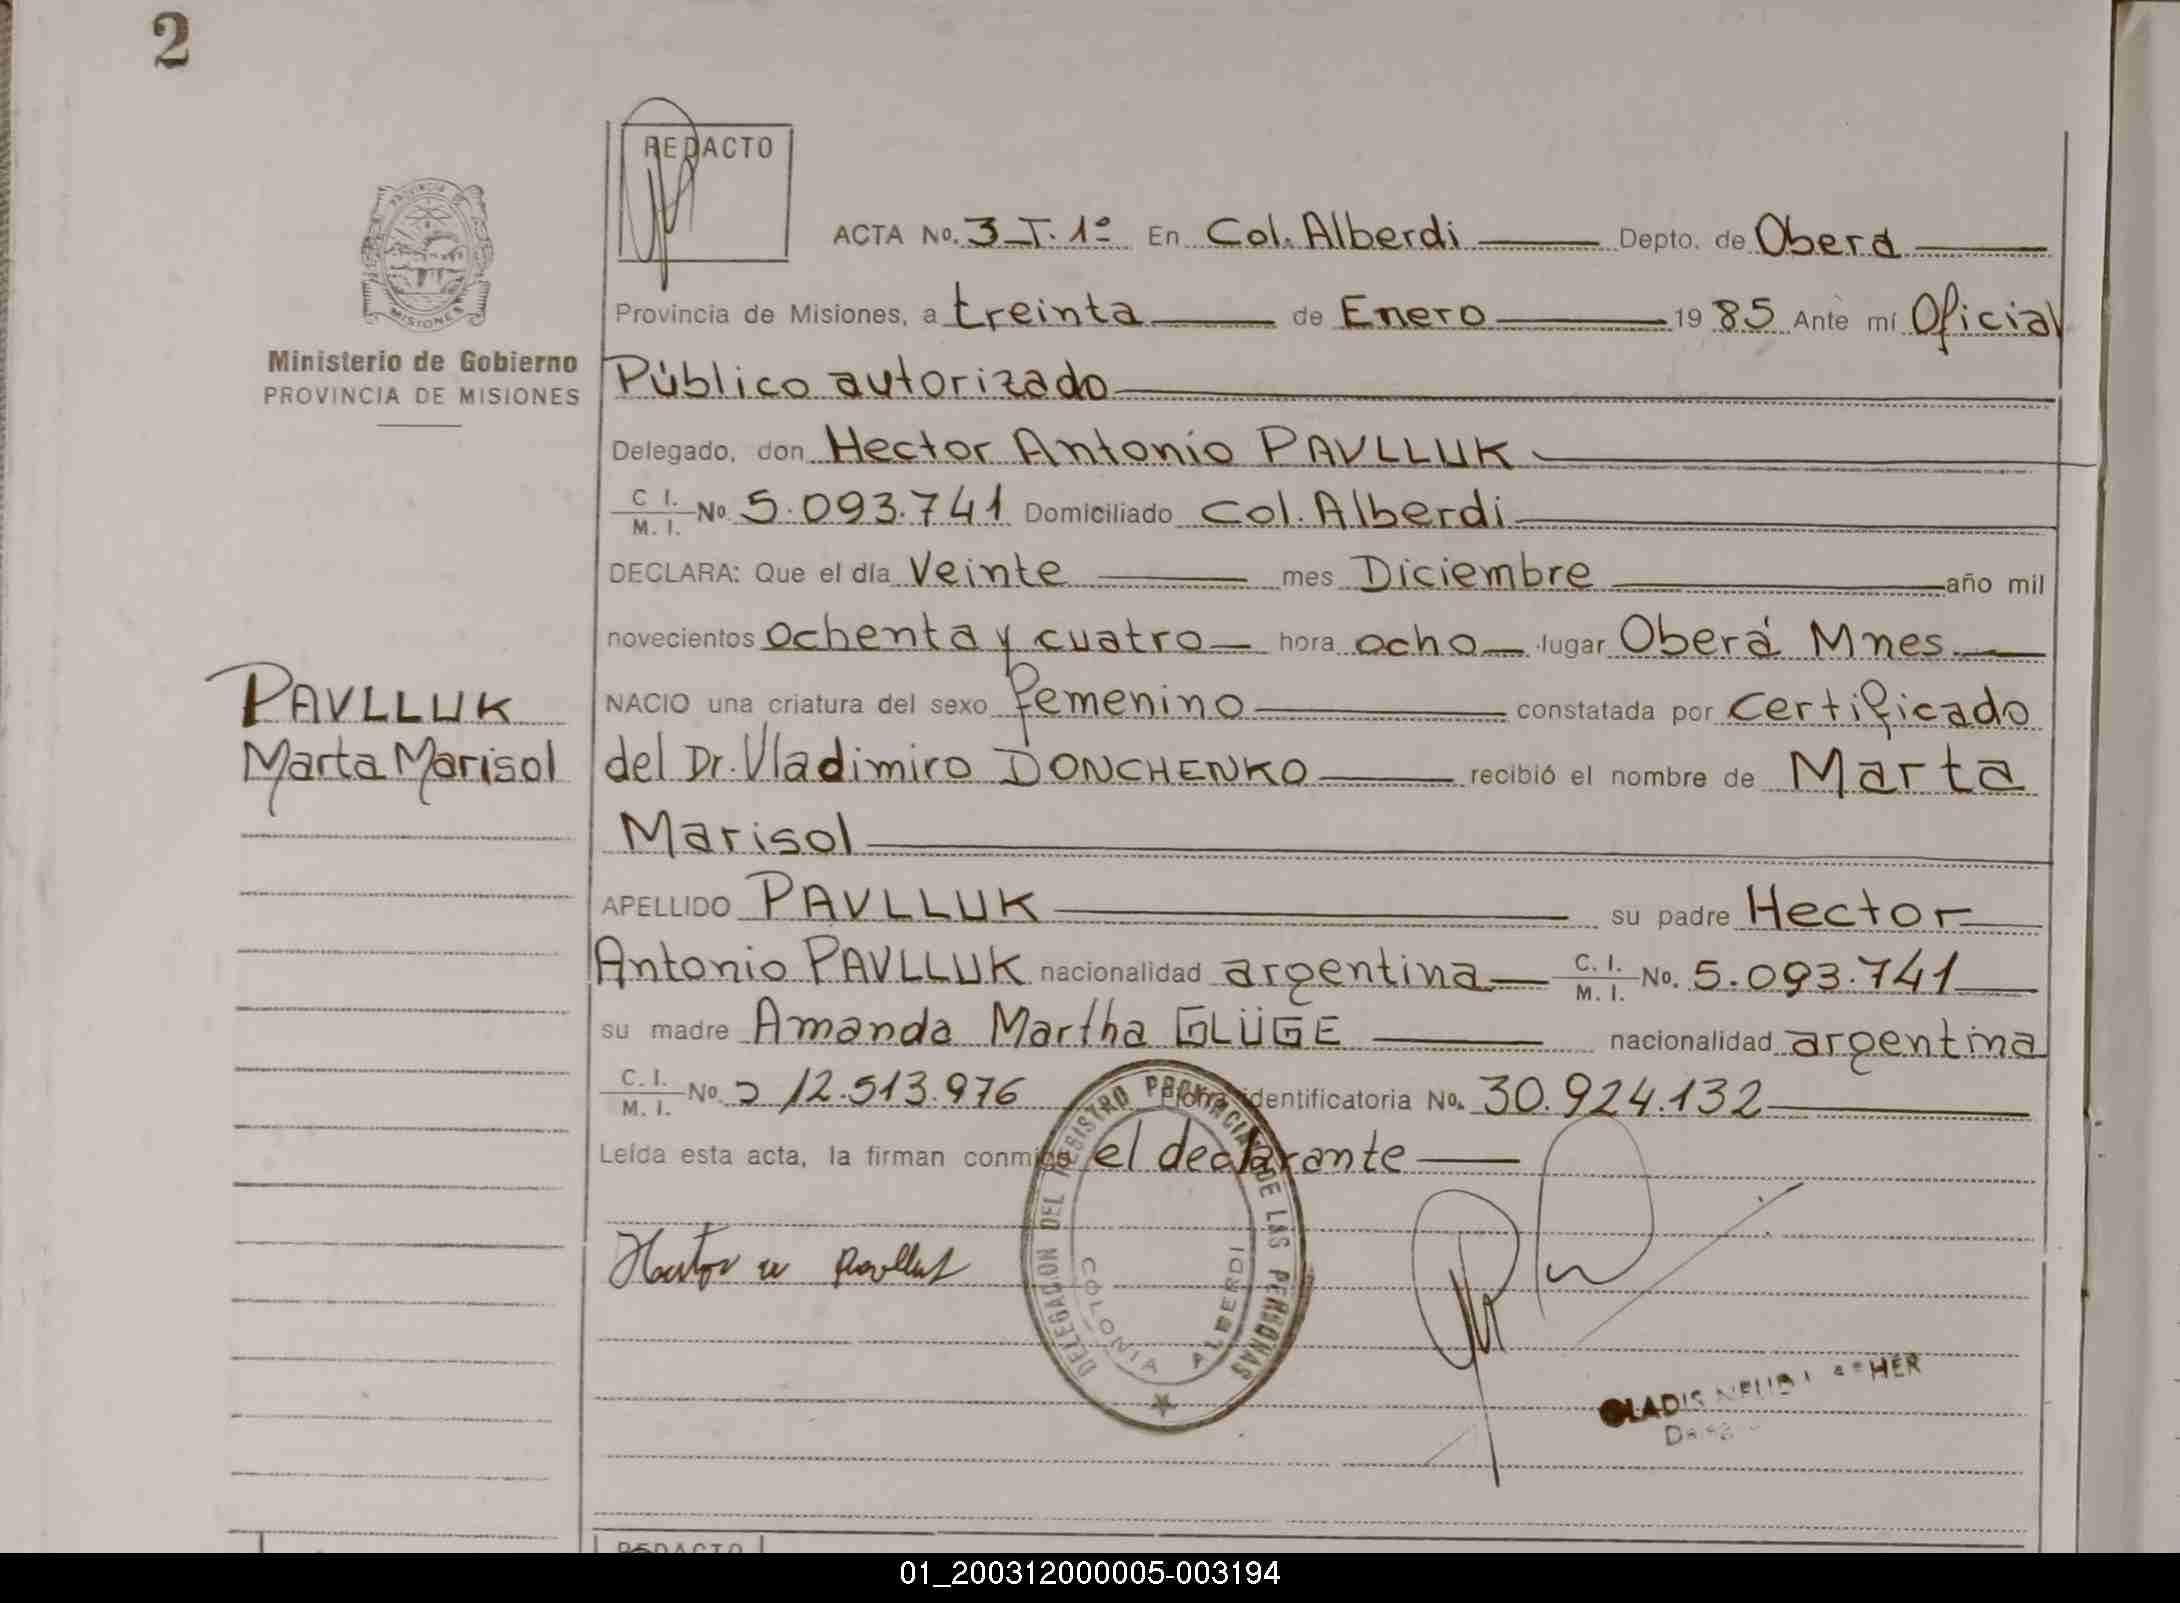 2
REDACTO
ACTA No. 3 T. 1º En Col. Alberdi Depto. de Oberá
Provincia de Misiones, a treinta de Enero 1985 Ante mí Oficial
Público autorizado
Delegado, don Hector Antonio PAVLLUK
C. I. / M. I. No. 5.093.741 Domiciliado Col. Alberdi
DECLARA: Que el día Veinte mes Diciembre año mil
novecientos ochenta y cuatro hora ocho lugar Oberá Mnes
NACIO una criatura del sexo femenino constatada por certificado
del Dr. Vladimiro DONCHENKO recibió el nombre de Marta
Marisol
APELLIDO PAVLLUK su padre Hector
Antonio PAVLLUK nacionalidad argentina C. I. / M. I. No. 5.093.741
su madre Amanda Martha GLÜGE nacionalidad argentina
C. I. / M. I. No. 12.513.976 Ficha identificatoria No. 30.924.132
Leída esta acta, la firman conmigo el declarante
PROVINCIA DE
MISIONES
Ministerio de Gobierno
PROVINCIA DE MISIONES
PAVLLUK
Marta Marisol
DELEGACION DEL REGISTRO PROVINCIAL DE LAS PERSONAS
COLONIA ALBERDI
GLADIS
REDACTO
01_200312000005-003194